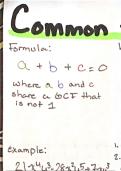 Common
Formula:
a + b + c = 0
where a, b and c
share a GCF that
is not 1
example:
1.
2.